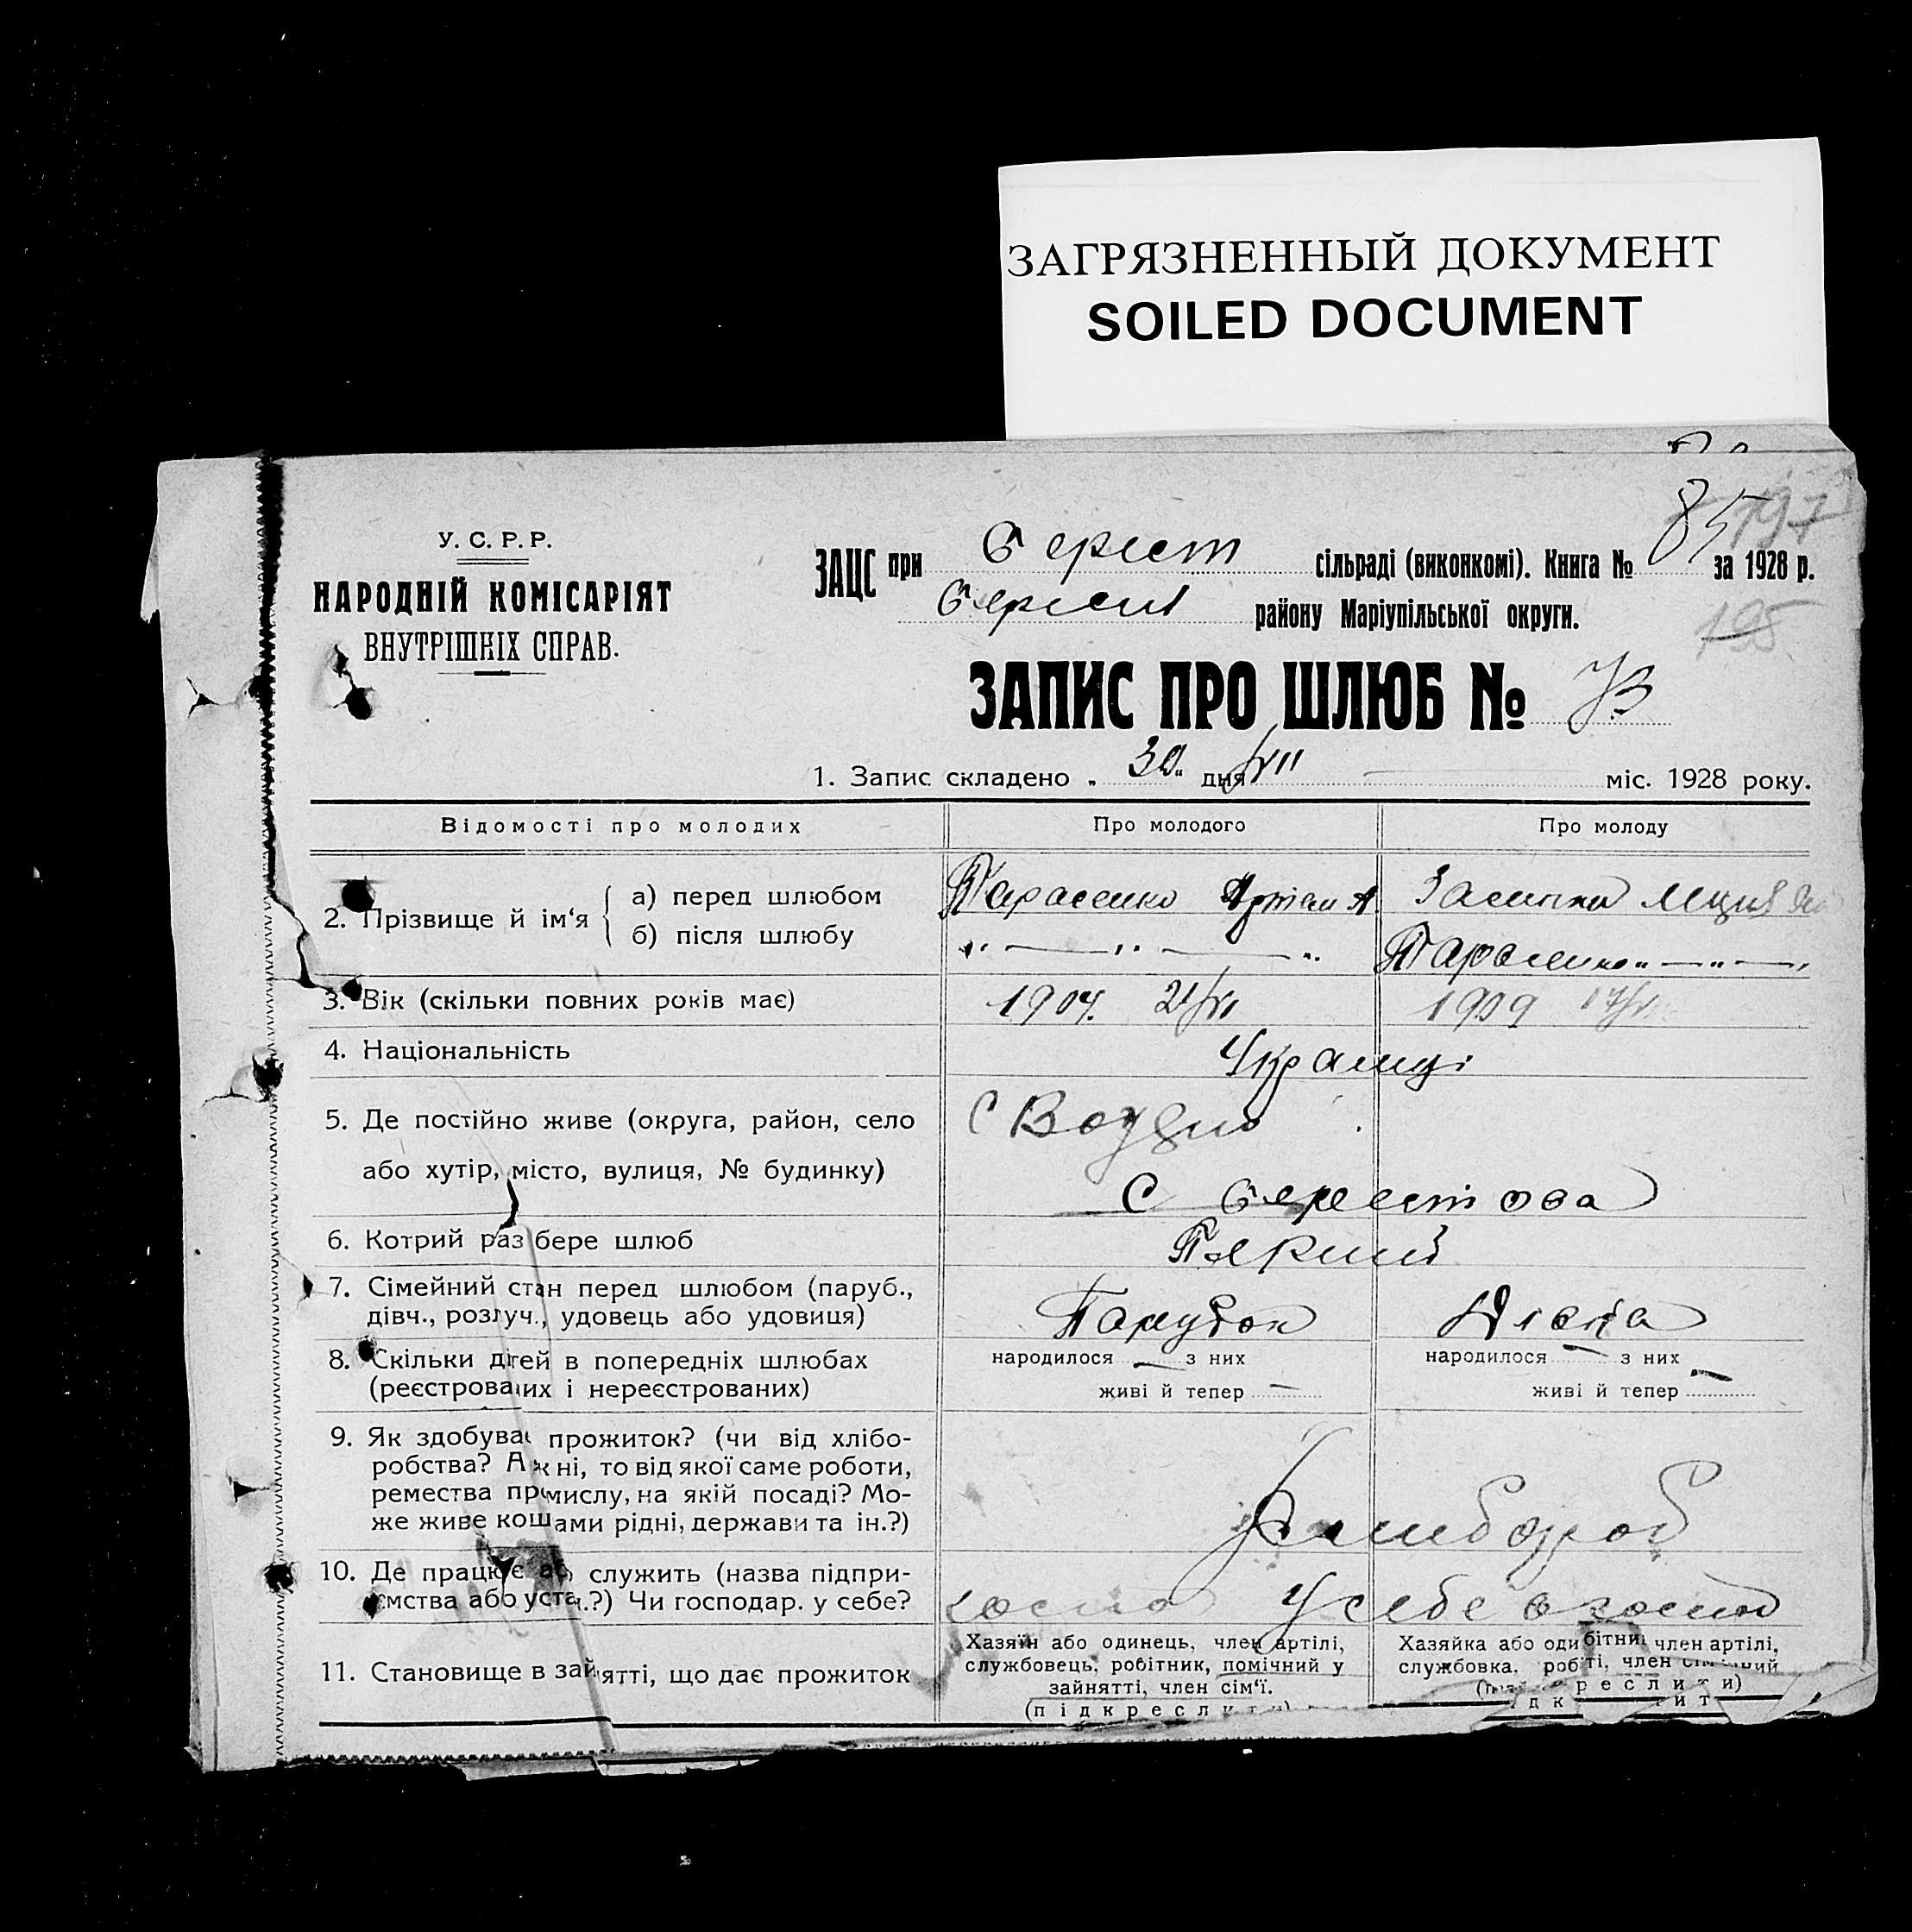 ЗАГРЯЗНЕННЫЙ ДОКУМЕНТ
SOILED DOCUMENT
У. С. Р. Р.
НАРОДНІЙ КОМІСАРІЯТ
ВНУТРІШНІХ СПРАВ.
85
ЗАЦС при Берест сільраді (виконкомі). Книга № за 1928 р.
району Маріупільської округи.
195
ЗАПИС ПРО ШЛЮБ № 73
1. Запис складено „ 30 “ дня міс. 1928 року.
Відомості про молодих Про молодого Про молоду
2. Прізвище й ім‘я
а) перед шлюбом Тарасенко Артем А.
б) після шлюбу „ — „ — „ Тарасенко „ — „ —
3. Вік (скільки повних років має) 1904. 1909
4. Національність Українці
5. Де постійно живе (округа, район, село
або хутір, місто, вулиця, № будинку)
с Берестова
6. Котрий раз бере шлюб
7. Сімейний стан перед шлюбом (паруб.,
дівч., розлуч., удовець або удовиця)
Парубок Дівка
8. Скільки дітей в попередніх шлюбах
(реєстрованих і нереєстрованих)
народилося — з них
живі й тепер —
народилося — з них
живі й тепер —
9. Як здобуває прожиток? (чи від хлібо-
робства? А як ні, то від якої саме роботи,
ремества промислу, на якій посаді? Мо-
же живе коштами рідні, держави та ін.?)
Хлибороб
10. Де працює або служить (назва підпри-
ємства або устан.?) Чи господар. у себе?
У себе в
11. Становище в занятті, що дає прожиток
Хазяїн або одинець, член артілі,
службовець, робітник, помічний у
зайнятті, член сім‘ї.
(підкреслити)
Хазяйка або оди член артілі,
службовка,